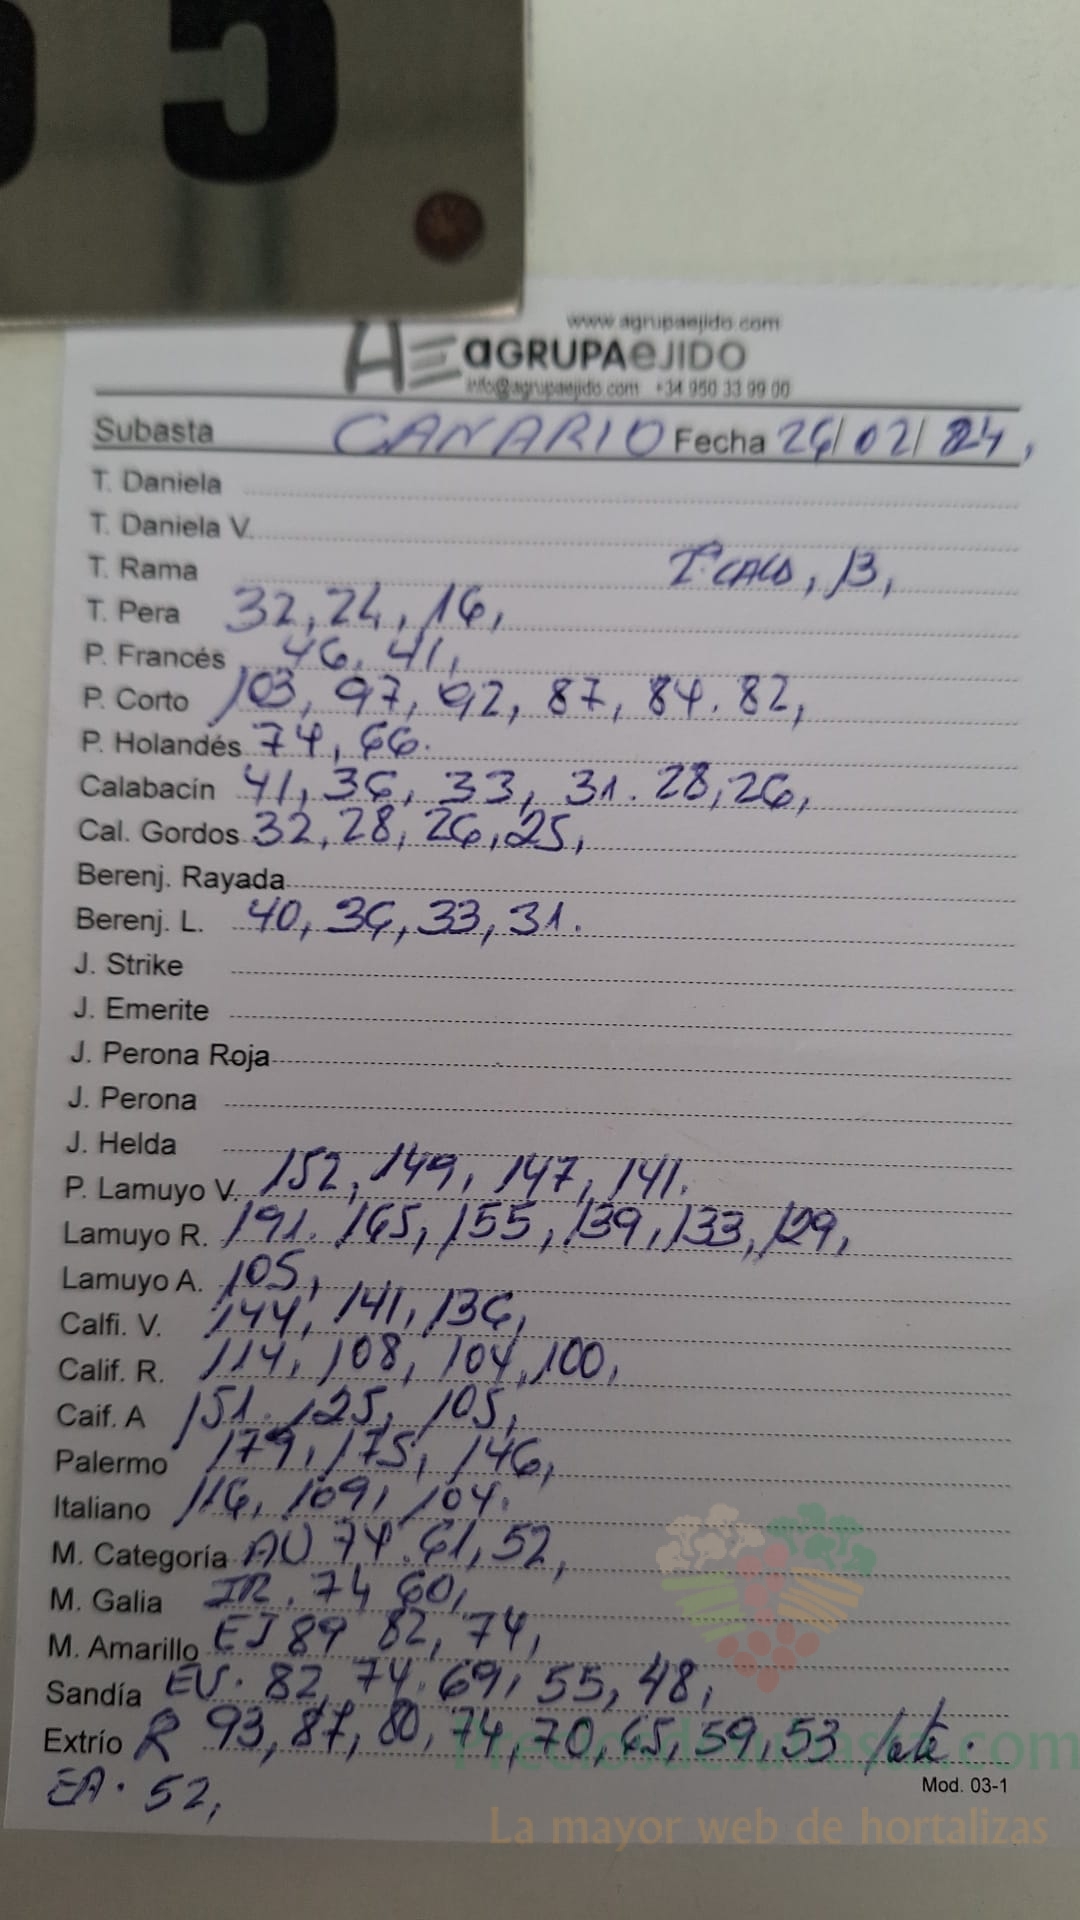 5
www.agrupaejido.com
AE aGRUPAeJIDO
info@agrupaejido.com +34 950 33 99 00
Subasta CANARIO Fecha 26/02/24,
T. Daniela
T. Daniela V.
T. Rama
13,
T. Pera 32, 24, 16,
P. Francés 46, 41,
P. Corto 103, 97, 92, 87, 84. 82,
P. Holandés 74, 66.
Calabacín 41, 36, 33, 31. 28, 26,
Cal. Gordos 32, 28, 26, 25,
Berenj. Rayada
Berenj. L. 40, 36, 33, 31.
J. Strike
J. Emerite
J. Perona Roja
J. Perona
J. Helda
P. Lamuyo V. 152, 149, 147, 141.
Lamuyo R. 191. 165, 155, 139, 133, 129,
Lamuyo A. 105,
Calfi. V. 144, 141, 136,
Calif. R. 114, 108, 104, 100,
Caif. A 151. 125, 105,
Palermo 179, 175, 146,
Italiano 116, 109, 104.
M. Categoría AU 74. 61, 52,
M. Galia IR. 74 60,
M. Amarillo EJ 89 82, 74,
Sandía EV. 82, 74. 69, 55, 48,
Extrío R 93, 87, 80, 74, 70, 65, 59, 53 lote.
EA. 52,
Mod. 03-1
Preciosdesubasta.com
La mayor web de hortalizas